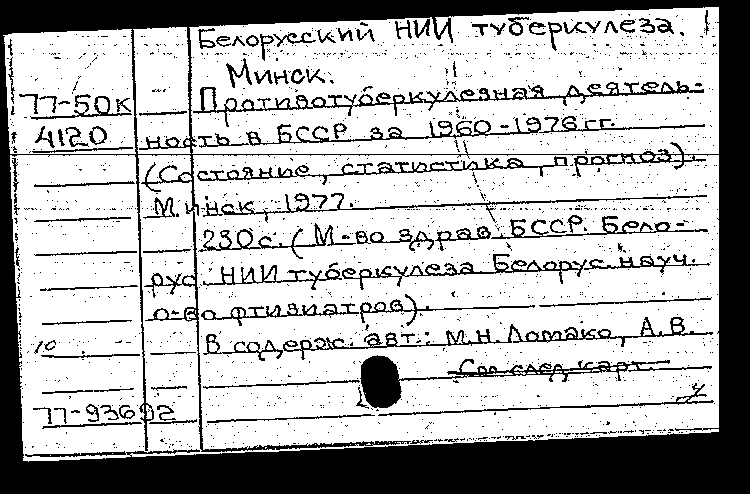 Белорусский НИИ туберкулеза.
Минск.
77-50к Противотуберкулезная деятель-
4120 ность в БССР за 1960-1976 гг.
(Состояние, статистика, прогноз).
Минск, 1977.
230 с. (М-во здрав. БССР. Бело-
рус. НИИ туберкулеза Белорус. науч.
о-во фтизиатров).
10 В содерж. авт.: М.Н. Ломако, А.В.
См след. карт.
77-93692